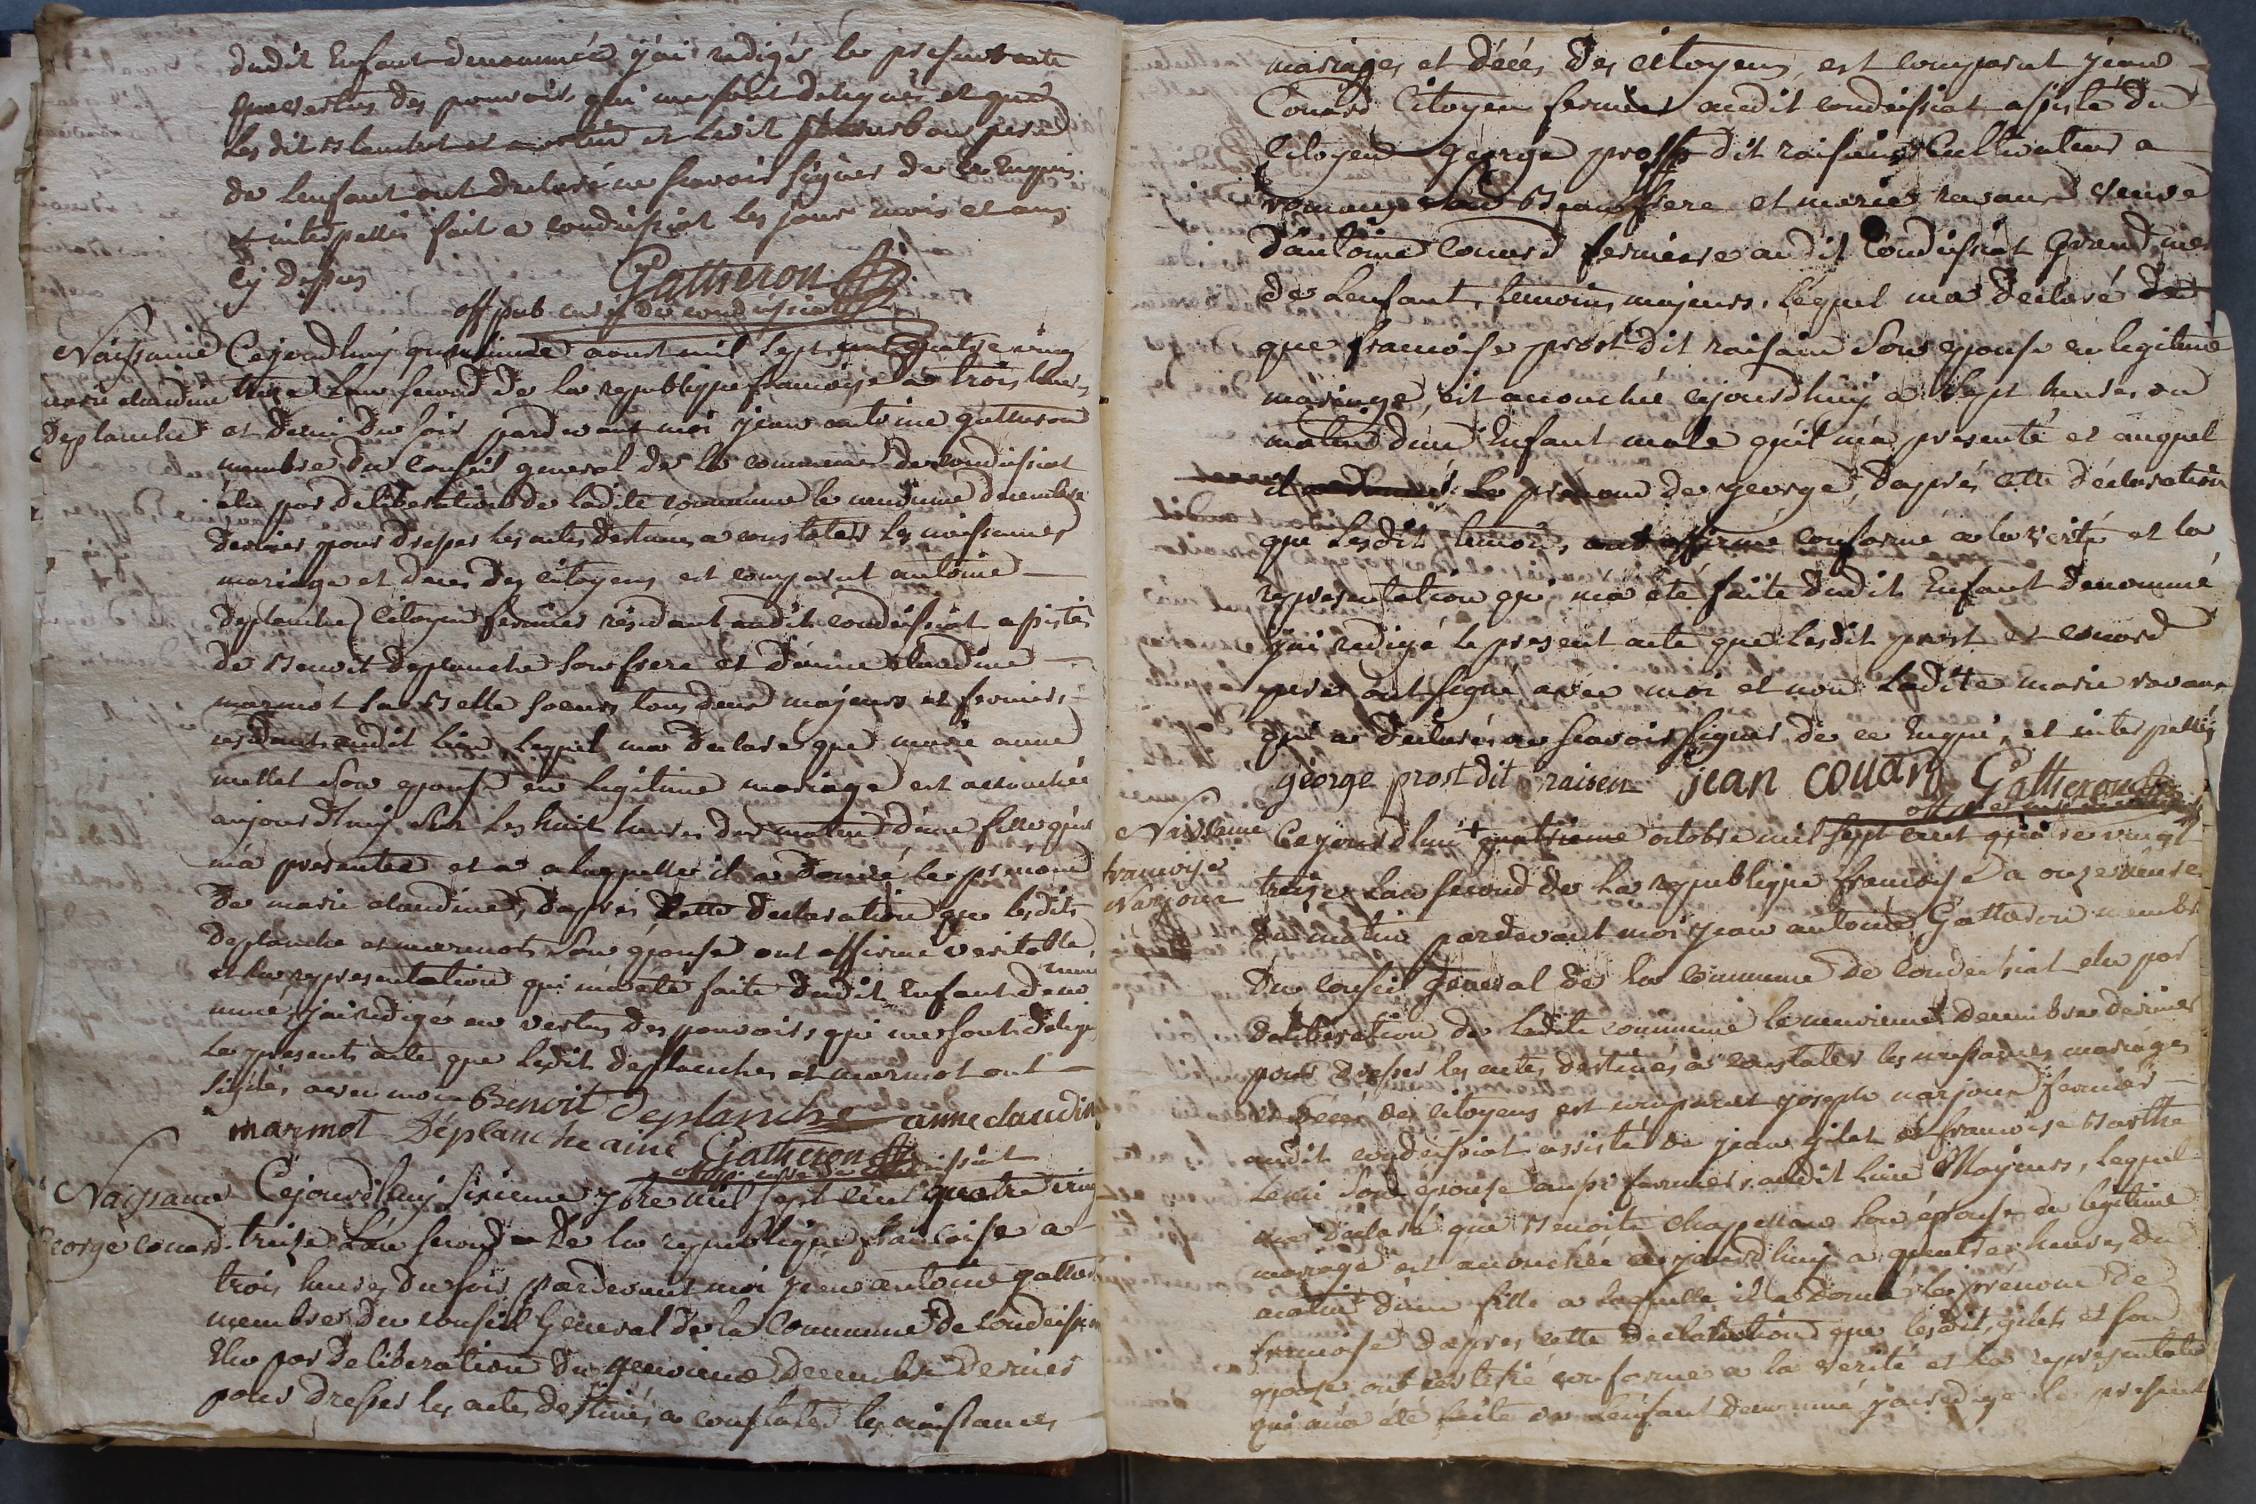 dudit Enfant denommée j'ai redigés le present acte
en vertus des pouvoirs qui me sont delegués et que
Les dit et ledit pere
de Lenfant ont declaré ne scavoir signer de ce Enquis
et interpellés fait a condeissiat les jour mois et ans
Cy dessus
Gattheron
off pub
Naissance Cejourdhuy aoust mil Sept cent quatre ving
marie claudine treize Lan second de la republique francoise a trois heures
Deplanche et demi du soir pardevant moi jean antoine gattheron
membre du Conseil general de la commune de condeissiat
élu par deliberation de ladite commune le neuvieme decembre
dernier pour dresser les actes destinés a constater les naissances
mariage et deces des citoyens est comparut antoine
deplanche Citoyen fermier résidant audit condeissiat assistés
de Benoit deplanche son frere et d'anne claudine
marmot sa Belle soeur tous deux majeurs et fermiers
residants audit lieu lequel ma declaré que marie anne
mettet son epouse en legitime mariage est accouchée
aujourdhuy sur les huit heures du matin d'une fille quil
m'a presentée et a laquelle il a donné le prenom
de marie claudine, d'aprés cette declaration que lesdits
deplanche et marmot son épouse ont affirmé veritable
et la representation qui m'a été faite dudit Enfant deno
mmé j'ai redigé en vertus des pouvoirs qui me sont délegu
Le present acte que lesdit deplanches et marmot ont
signés avec moi Benoit deplanche anne claudine
marmot Déplanche ainé Gattheron
Naissance Cejourdhuy sixieme 7bre mil sept cent quatre ving
George couard treize L'an second de la republique francoise a
trois heures du soir pardevant moi jean antoine gatther
membre du conseil General de la Commune de condeissia
Elu par deliberation du neuvieme decembre dernier
pour dresser les actes destinés a constater les naissances
mariages et décés des citoyens, est comparut jean
Couard Citoyen fermier audit condeissiat assisté du
Citoyen george prost dit raisin Cultivateur a
romans son Beaufrere et marie ravans veuve
d'antoine Couard fermiere audit Condeissiat Grand mere
de Lenfant, temoins majeurs, lequel ma declaré
que francoise prost dit raisin Son epouse en legitime
mariage, est accouchée cejourdhuy a Sept heures du
matin d'un Enfant male quil m'a presenté et auquel
il a donné le prénom de george, d'aprés cette déclaration
que lesdit temoins, ont affirmé conforme a la verité et la
representation qui m'a été faite dudit Enfant denommé
j'ai redigé le present acte que lesdit prost et couard
pere ont signé avec moi et non ladite marie ravans
qui a declaré ne scavoir signer de ce Enqui, et interpellés
george prost dit raisen jean couard Gattheron
Naissance Cejourdhui quatrieme octobre mil Sept cent quatre vingt
francoise treize Lan second de la republique francoise a onze heures
Narjoux du matin pardevant moi jean antoine Gattheron membr
du conseil general de la Commune de condeissiat elu par
deliberation de ladite commune le neuvieme decembre dernier
pour dresser les actes destinés a constater les naissances mariages
et décés des citoyens est comparut joseph narjoux fermier
audit condeissiat assisté de jean gilet et francoise Barthe
Lemi son épouse aussi fermiers audit lieu Majeurs, lequel
ma déclaré que Benoite Chapellan son épouse en legitime
mariage est accouchée cejourdhuy a quatre heures du
matin d'une fille a laquelle il a donné le prénom de
francoise d'apres cette declaration que lesdit gilet et son
epouse ont certifié conforme a la verité et la representatio
qui m'a été faite de Lenfant denommé j'ai redigé le present